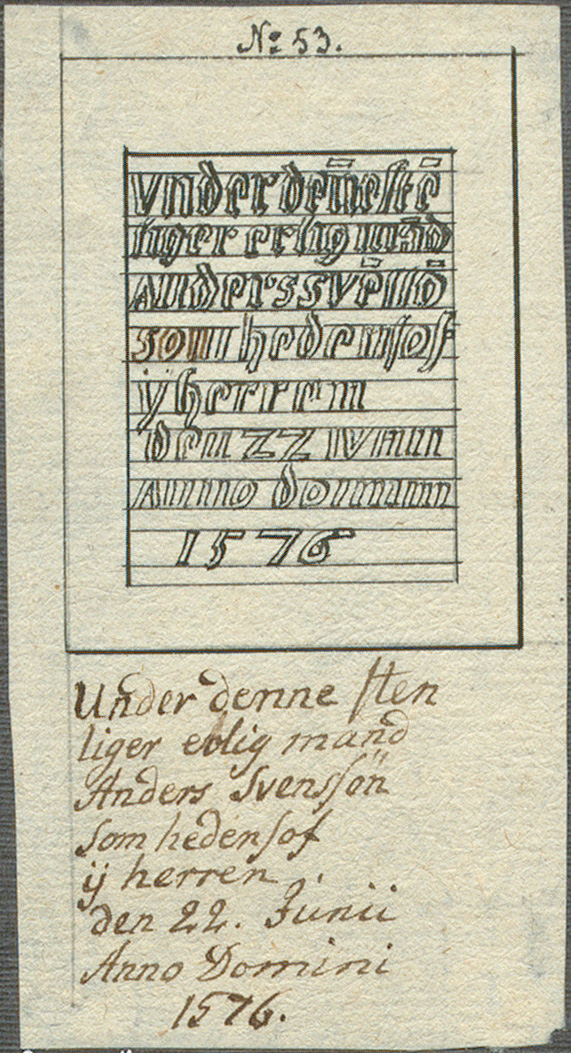 No: 53.
vnder deñestē
liger erlig mād
anders svēssō
som hedensof
ÿ herrem
den 22 ivnii
anno domini
1576
Under denne sten
liger erlig mand
Anders Svenssön
som hedensof
ij herren
den 22. Junii
Anno Domini
1576.